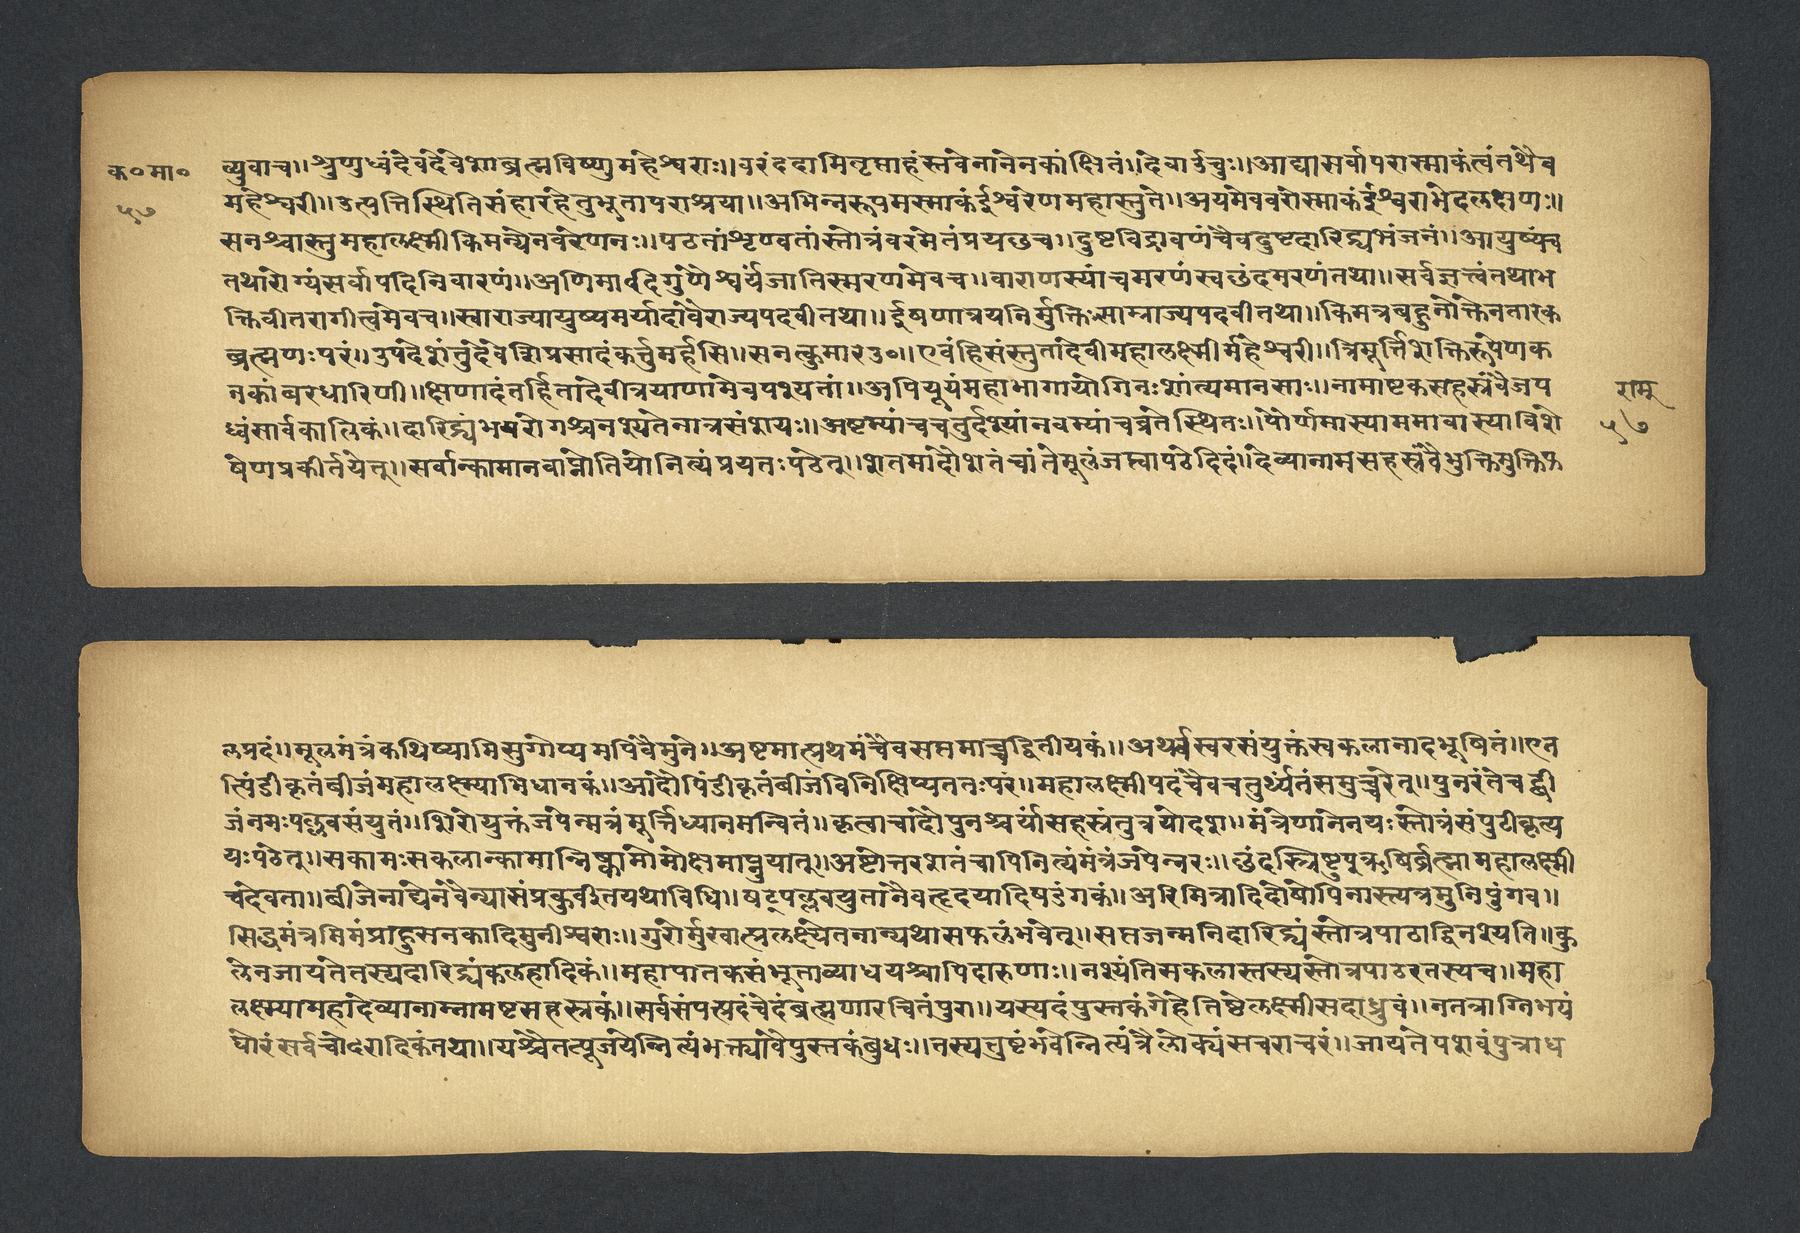 क॰मा॰
५७
व्युवाच।।श्रुणुध्वंदेवदेवेशाब्रह्मविष्णुमहेश्वराः।।वरंददामितृप्ताहंस्तवेनानेनकांक्षितं।।देवाऊचुः।।आद्यासर्वापरास्माकंत्वंतथैव
महेश्वरी।।उत्पत्तिस्थितिसंहारहेतुभुतापराश्रया।।अभिन्नरूपमस्माकंईश्वरेणमहास्तुते।।अयमेववरोस्माकंईश्वराभेदलक्षणः।।
सनश्चास्तुमहालक्ष्मीकिमन्यैनवरेणनः।।पठतांशृण्वतांस्तोत्रंवरमेतंप्रयछच।।दुष्टविद्रावणंचैवदुष्टदारिद्र्यभंजनं।।आयुष्यंच
तथारोग्यंसर्वापदिनिवारणं।।अणिमादिगुणैश्वर्यंजातिस्मरणमेवच।।वाराणस्यांचमरणंस्वछंदमरणंतथा।।सर्वज्ञत्त्वंतथाभ
क्तिवीतरागीत्वमेवच।।स्वाराज्यायुष्यमर्यादावैराज्यपदवीतथा।।ईषणात्रयनिर्मुक्तिःसाम्राज्यपदवीतथा।।किमत्रबहुनोक्तेनतारक
ब्रह्मणःपरं।।उपदेशंतुंदेवेशिप्रसादंकर्त्तुमर्हसि।।सनत्कुमारउ०।।एवंहिसंस्तुतादेवीमहालक्ष्मीर्महेश्वरी।।त्रिमूर्त्तिशक्तिरूपेणक
नकांबरधारिणी।।क्षिणादंतर्हितादेवीत्रयाणामेवपश्यतां।।अपियूयंमहाभागायोगिनःशांत्यमानसाः।।नामाष्टकसहस्त्रंवैजप
ध्वंसार्वकालिकं।।दारिद्र्यंभयरोगश्चनश्यतेनात्रसंशयः।।अष्टम्यांचचतुर्दश्यांनवम्यांचव्रतेस्थितः।।पौर्णमास्याममावास्याविशे
षेणप्रकीर्तयेत्।।सर्वान्कामानवाप्नोतियोनित्यंप्रयतःपठेत्।।शतमादौशतंचांतेमूलंजप्त्वापठेदिदं।।दिव्यानामसहस्त्रंवैभुक्तिमुक्तिफ
रामू
५७
लप्रदं।।मूलमंत्रंकथिष्यामिसुगोप्यमपिवैमुने।।अष्टमात्प्रथमंचैवसप्तमाच्चद्वितीयकं।।अथर्श्चस्वरसंयुक्तंस्वकलानादभूषितं।।एत
त्पिंडीकृतंबीजंमहालक्ष्म्याभिधानकं।।आदौपिंडीकृतंबीजंविनिक्षिप्यततःपरं।।महालक्ष्मीपदंचैवचतुर्थ्यंतंसमुच्चरेत्।।पुनरंतेचद्बी
जंनमःपल्लवसंयुतं।।शिरोयुक्तंजपेन्मत्रंमूर्त्तिध्यानमन्वितं।।कृत्वाचादौपुनश्चर्यासहस्त्रंतुत्रयोदश।।मंत्रेणानेनयःस्तोत्रंसंपुटीकृत्य
यःपठेत्।।सकामःसकलान्कामान्निष्कामोमोक्षमाप्नुयात्।।अष्टोत्तरशतंचापिनित्यंमंत्रंजपेन्नरः।।छंदस्त्रिष्टुप्ऋषिर्ब्रह्मामहालक्ष्मी
चदेवता।।बीजेनाद्येनवैन्यासंप्रकुर्वीतयथाविधि।।षट्पल्लवयुतांनैवहृदयादिषडंगकं।।अरिमित्रादिदोषोपिनास्त्यत्रमुनिपुंगव।।
सिद्धमंत्रमिमंप्राहुसनकादिमुनीश्वराः।।गुरोर्मुखात्प्रलक्ष्येतनान्यथासफलंभवेत्।।सप्तजन्मनिदारिद्र्यंस्तोत्रपाठाद्विनश्यति।।कु
लेनजायतेतस्यदारिद्र्यंकलहादिकं।।महापातकसंभूताव्याधयश्चापिदारुणाः।।नश्यंतिसकलास्तस्यस्तोत्रपाठरतस्यच।।महा
लक्ष्म्यामहादिव्यानाम्नामष्टसहस्त्रकं।।सर्वसंपत्प्रदंचेदंब्रह्मणारचितंपुरा।।यस्यदंपुस्तकंगेहेतिष्ठेलक्ष्मीसदाध्रुवं।।नतत्राग्निभयं
घोरंसर्वचोदरादिकंतथा।।यश्चैतत्पूजयेन्नित्यंभक्त्यावैपुस्तकंबुधः।।तस्यत्तुष्टंभवेन्नित्यंत्रैलोक्यंसचराचरं।।जायतेपशवंपुत्राध